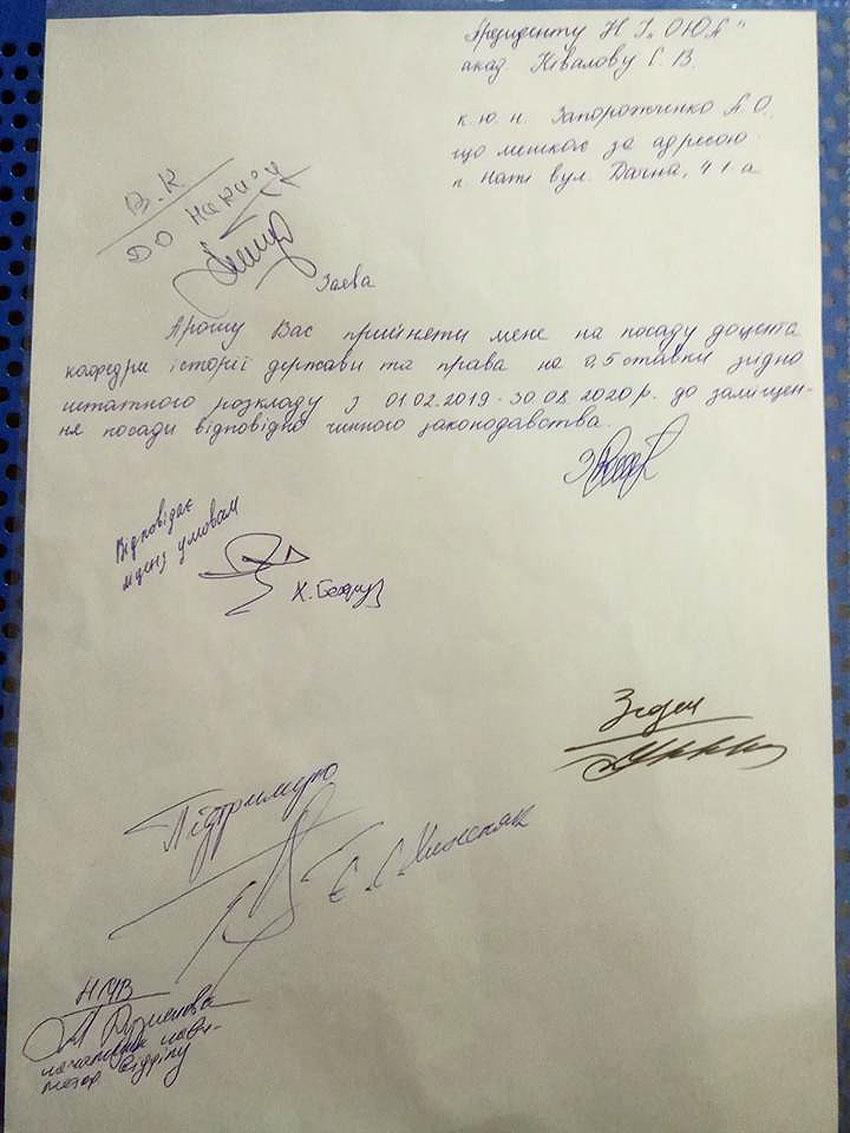 Президенту НУ „ОЮА"
акад. Ківалову С. В.
к.ю.н. Запорожченко А. О.
що мешкає за адресою
вул. Дачна, 41-а
В.К.
до наказу
Заява
Прошу Вас прийняти мене на посаду доцента
кафедри історії держави та права на 0,5 ставки згідно
штатного розкладу з 01.02.2019 - 30.08.2020 р. до заміщен-
ня посади відповідно чинного законодавства.
Відповідає
ліценз умовам
Згоден
Підтримую
НМВ
начальник навч-
метод відділу